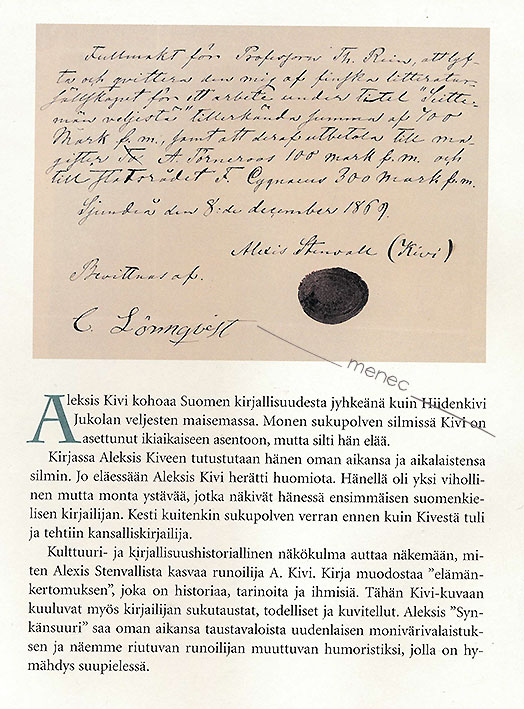 Fullmakt för Professorn Th. Rein, att lyf-
ta och qvittera den mig af finska litteratur
sällskapet för ett arbete under titel "Seitse-
män veljestä" tillerkända summa af 700
Mark f.m., samt att deraf utbetala till ma-
gister A. Törneroos 100 mark f.m. och
till statsrådet F. Cygnaeus 300 mark f.m.
Sjundeå den 8:de december 1869.
Alexis Stenvall (Kivi)
Bevittnas af.
C. Lönnqvist
menec
Aleksis Kivi kohoaa Suomen kirjallisuudesta jyhkeänä kuin Hiidenkivi
Jukolan veljesten maisemassa. Monen sukupolven silmissä Kivi on
asettunut ikiaikaiseen asentoon, mutta silti hän elää.
Kirjassa Aleksis Kiveen tutustutaan hänen oman aikansa ja aikalaistensa
silmin. Jo eläessään Aleksis Kivi herätti huomiota. Hänellä oli yksi viholli-
nen mutta monta ystävää, jotka näkivät hänessä ensimmäisen suomenkie-
lisen kirjailijan. Kesti kuitenkin sukupolven verran ennen kuin Kivestä tuli
ja tehtiin kansalliskirjailija.
Kulttuuri- ja kirjallisuushistoriallinen näkökulma auttaa näkemään, mi-
ten Alexis Stenvallista kasvaa runoilija A. Kivi. Kirja muodostaa ”elämän-
kertomuksen”, joka on historiaa, tarinoita ja ihmisiä. Tähän Kivi-kuvaan
kuuluvat myös kirjailijan sukutaustat, todelliset ja kuvitellut. Aleksis ”Syn-
känsuuri” saa oman aikansa taustavaloista uudenlaisen monivärivalaistuk-
sen ja näemme riutuvan runoilijan muuttuvan humoristiksi, jolla on hy-
mähdys suupielessä.